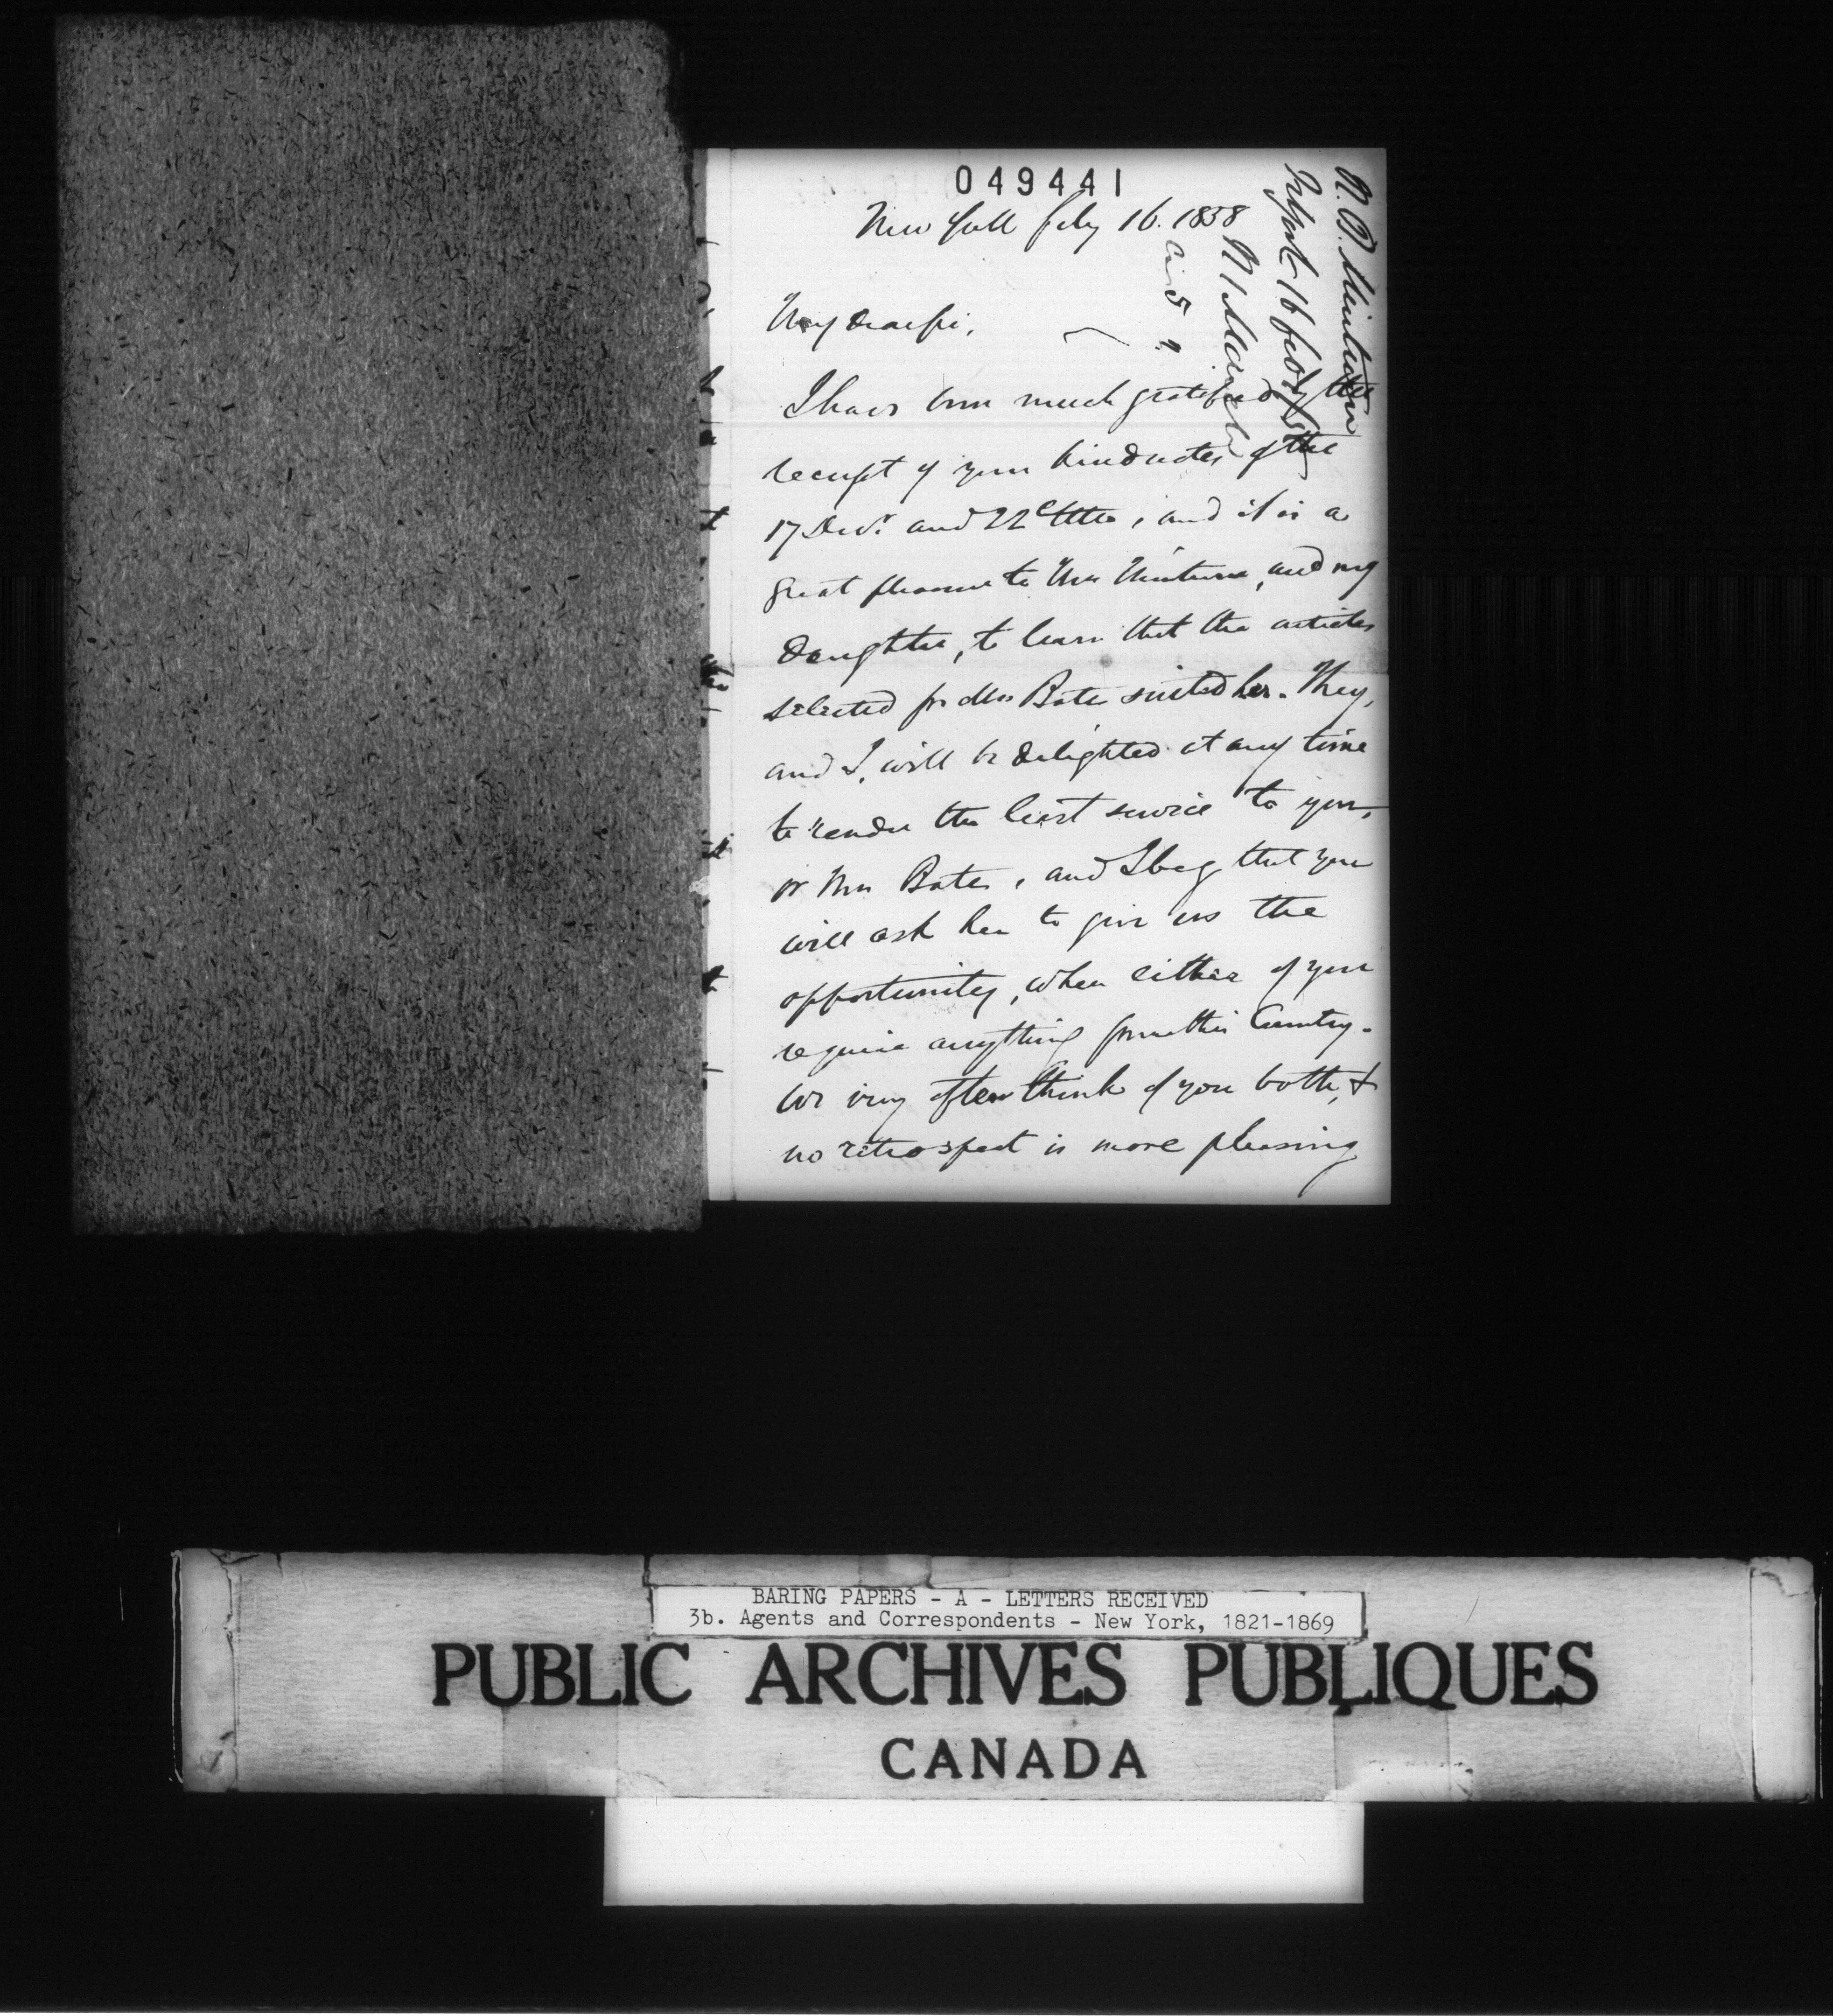 049441
New York Feby 16. 1858
R. B. Minturn
N York 16 feby /58
My dear Sir,
I have been much gratified by the
receipt of your kind notes of the
17 Decr. and 22d Ulto, and it is a
great pleasure to Mrs Minturn, and my
daughter, to learn that the articles
selected for Mrs Bates suited her. They,
and I, will be delighted at any time
to render the least service to you,
or Mrs Bates, and I beg that you
will ask her to give us the
opportunity, when either of you
require anything from this Country.
We very often think of you both, &
no retrospect is more pleasing
BARING PAPERS - A - LETTERS RECEIVED
3b. Agents and Correspondents - New York, 1821-1869
PUBLIC ARCHIVES PUBLIQUES
CANADA